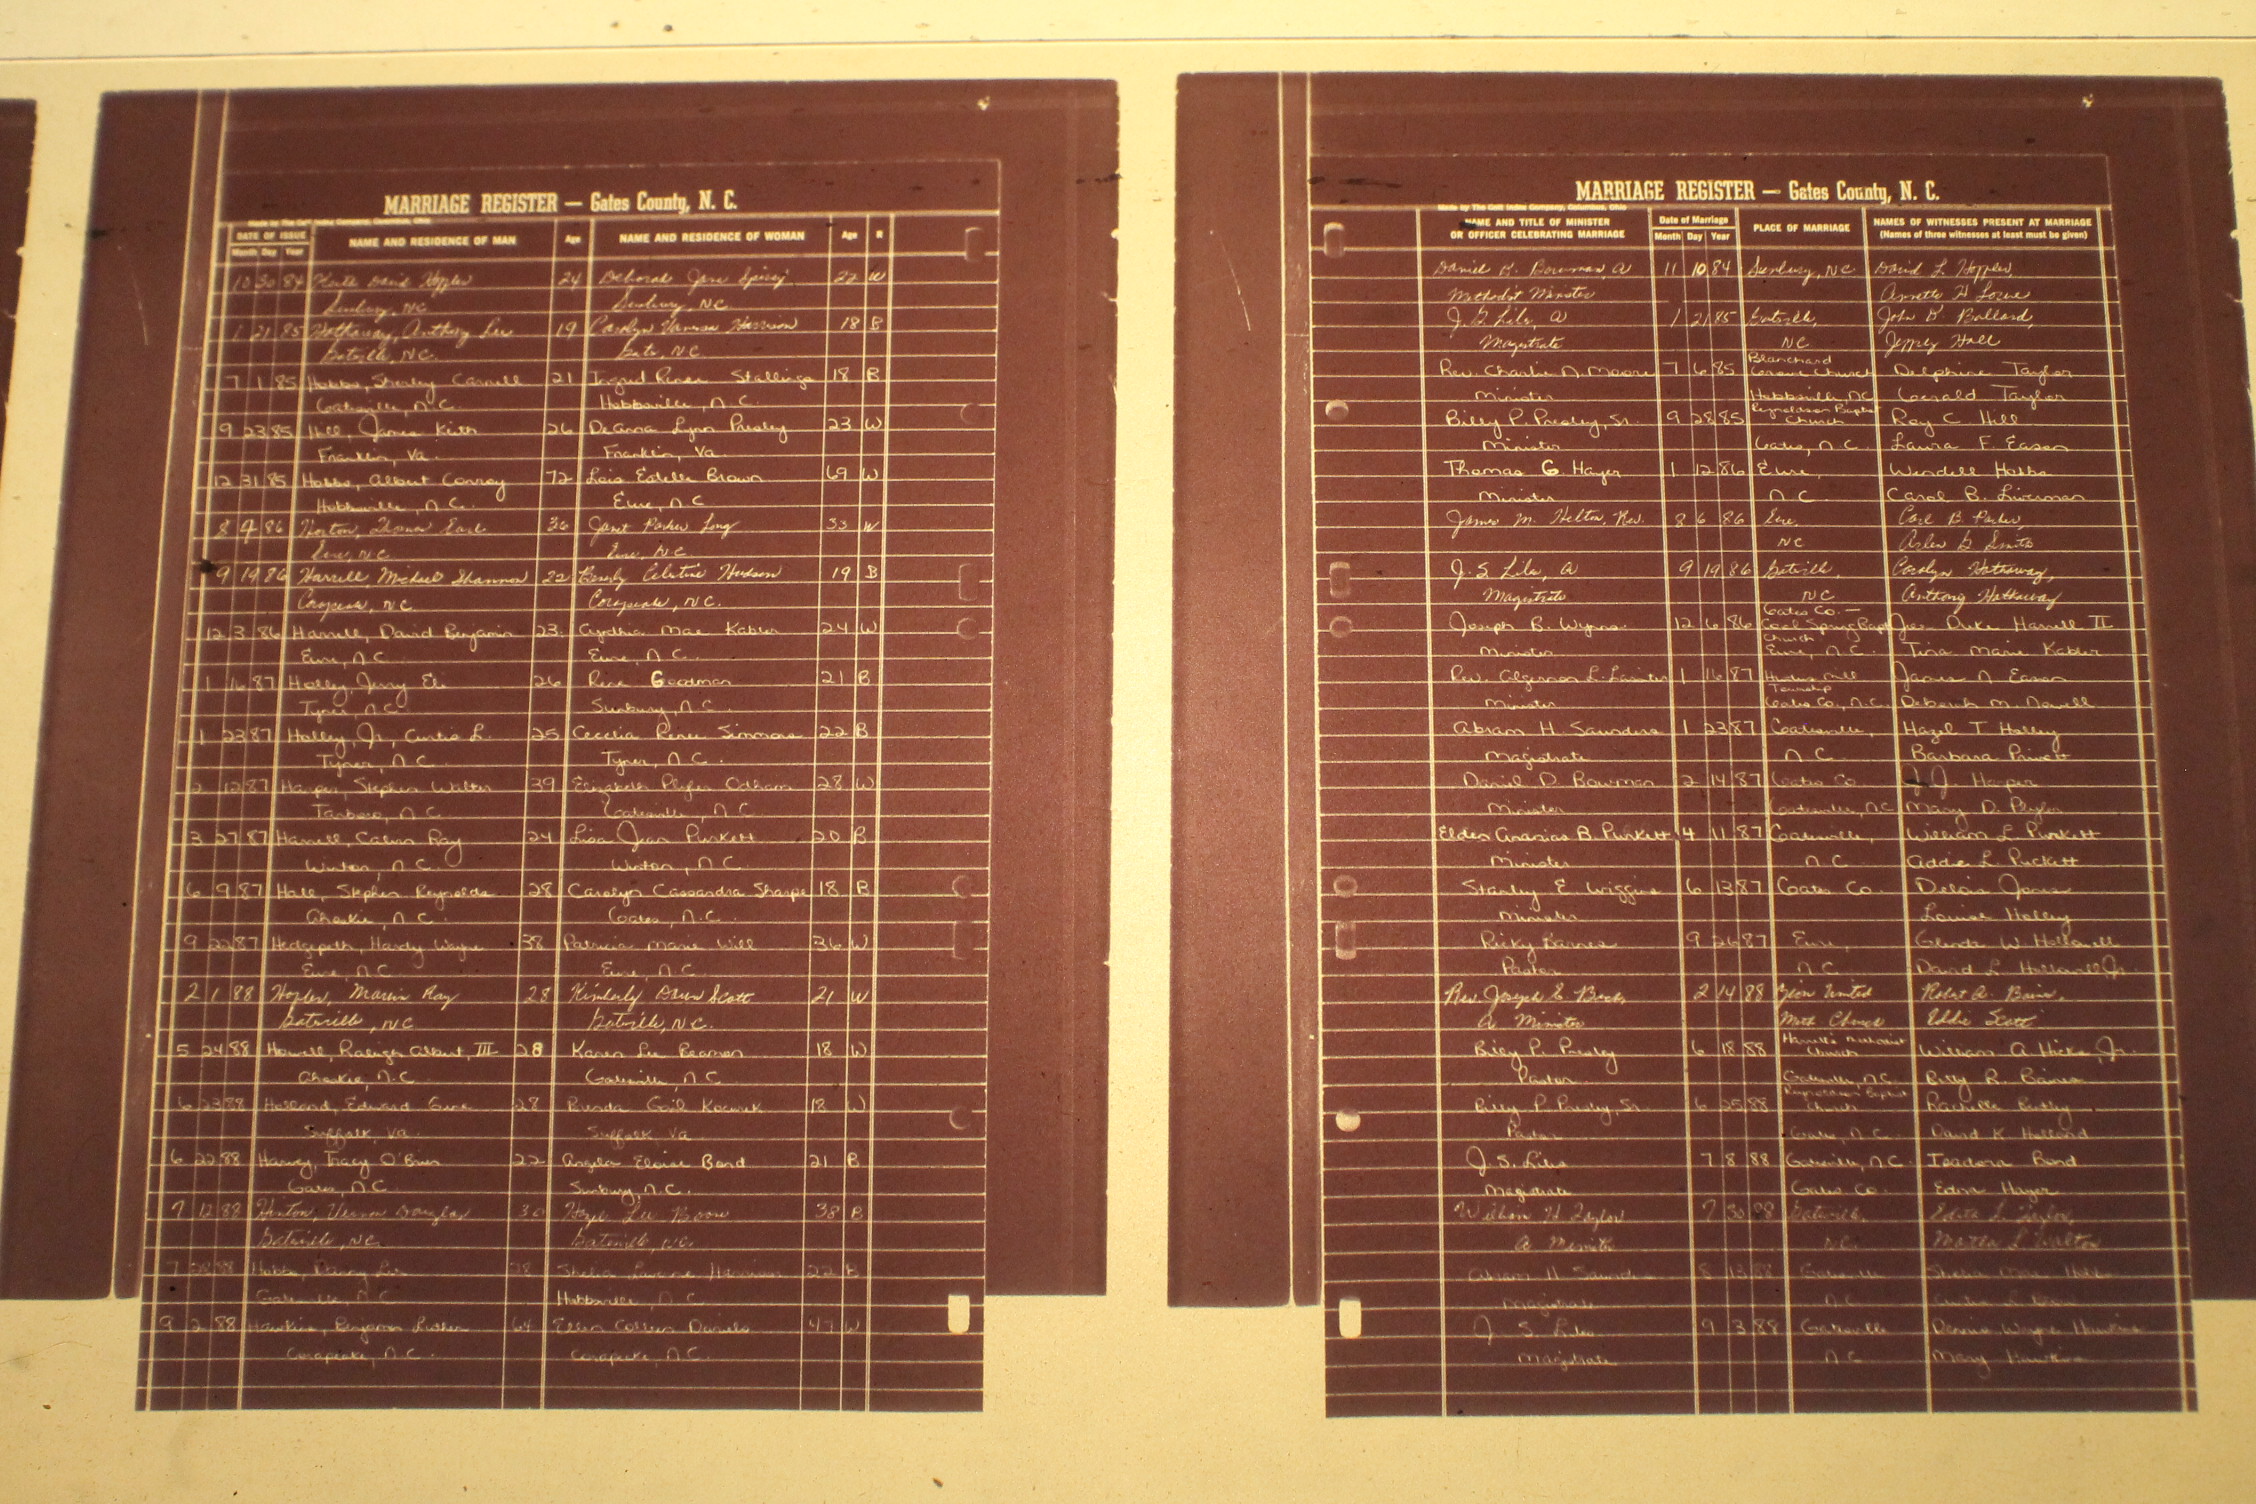 MARRIAGE REGISTER — Gates County, N. C.
Made by The Cott Index Company, Columbus, Ohio
DATE OF ISSUE
Month Day Year
NAME AND RESIDENCE OF MAN
Age
NAME AND RESIDENCE OF WOMAN
Age
R
10 30 84 Keith David Hoffler 24 Deborah Jane Spivey 22 W
Sunbury, NC Sunbury, NC
1 21 85 Hathaway, Anthony Lee 19 Carolyn Vanessa Harrison 18 B
Gatesville, NC. Gates, NC
7 1 85 Hobbs, Stanley Carnell 21 Ingrid Renea Stallings 18 B
Gatesville, N.C. Hobbsville, N.C.
9 23 85 Hill, James Keith 26 DeAnna Lynn Presley 23 W
Franklin, Va. Franklin, Va
12 31 85 Hobbs, Albert Conroy 72 Lois Estelle Brown 69 W
Hobbsville, N.C. Eure, N.C
8 4 86 Horton, Thomas Earl 36 Janet Parker Long 33 W
Eure, NC Eure, NC
9 19 86 Harrell, Michael Shannon 22 Beverly Celestine Hudson 19 B
Corapeake, NC Corapeake, NC.
12 3 86 Harrell, David Benjamin 23 Cynthia Mae Kabler 24 W
Eure, N.C. Eure, N.C.
1 16 87 Holley, Jerry Eli 26 Rene Goodman 21 B
Tyner, N.C. Sunbury, N.C.
1 23 87 Holley, Jr., Curtis L. 25 Cecelia Renee Simmons 22 B
Tyner, N.C. Tyner, N.C.
2 12 87 Harper, Stephen Walter 39 Elizabeth Plyler Odham 28 W
Tarboro, N.C. Gatesville, N.C
3 27 87 Harrell, Calvin Ray 24 Lisa Jean Purkett 20 B
Winton, N.C. Winton, N.C.
6 9 87 Hall, Stephen Reynolds 28 Carolyn Cassandra Sharpe 18 B
Ahoskie, N.C. Gates, N.C.
9 22 87 Hedgepeth, Hardy Wayne 38 Patricia Marie Will 36 W
Eure, N.C. Eure, N.C.
2 1 88 Hofler, Marvin Ray 28 Kimberly Dawn Scott 21 W
Gatesville, NC Gatesville, NC.
5 24 88 Howell, Raleigh Albert, III 28 Karen Lee Beamon 18 W
Ahoskie, N.C. Gatesville, N.C
6 23 88 Holland, Edward Gene 28 Brenda Gail 18 W
Suffolk, Va. Suffolk, Va
6 22 88 Harvey, Tracy O'Brien 22 Angela Eloise Bond 21 B
Gates, N.C. Sunbury, N.C.
7 12 88 Hinton, Vernon Douglas 30 Hazel Lee Boone 38 B
Gatesville, NC Gatesville, NC.
7 88 Hobbs, Danny Lee 28 Shelia Harrison 22 B
Gatesville, N.C. Hobbsville, N.C
9 2 88 Hawkins, Benjamin Luther 64 Ellen Collins Daniels 47 W
Corapeake, N.C. Corapeake, N.C.
MARRIAGE REGISTER — Gates County, N. C.
Made by The Cott Index Company, Columbus, Ohio
NAME AND TITLE OF MINISTER
OR OFFICER CELEBRATING MARRIAGE
Date of Marriage
Month Day Year
PLACE OF MARRIAGE
NAMES OF WITNESSES PRESENT AT MARRIAGE
(Names of three witnesses at least must be given)
Daniel D. Bowman, A 11 10 84 Sunbury, NC David L. Hoffler,
Methodist Minister Annette H Lowe
J. S. Liles, A 1 21 85 Gatesville, John B Ballard,
Magistrate NC Jeffrey Hall
Rev. Charlie N. Moore 7 6 85 Blanchard Church Delphine Taylor
Minister Hobbsville, NC Gerald Taylor
Billy P. Presley, Sr. 9 28 85 Reynoldson Baptist Church Roy C. Hill
Minister Gates, N.C. Laura F. Eason
Thomas G. Hager 1 12 86 Eure, Wendell Hobbs
Minister N.C. Carol B. Liverman
James M. Helton, Rev. 8 6 86 Eure, Carl B. Parker,
NC Arlen G Smith
J. S. Liles, A 9 19 86 Gatesville, Carolyn Hathaway,
Magistrate NC Anthony Hathaway
Joseph B. Wynns 12 6 86 Gates Co. — Cool Spring Bapt Church Duke Harrell II
Minister Eure, N.C. Tina Marie Kabler
Rev. Algernon L. Lassiter 1 16 87 Hunters Mill Township James N Eason
Minister Gates Co., N.C. Deborah M. Nowell
Abram H. Saunders 1 23 87 Gatesville, Hazel T Holley
Magistrate N.C. Barbara Privott
Daniel D. Bowman 2 14 87 Gates Co J. J. Harper
Minister Gatesville, N.C Mary D. Plyler
Elder Ananias B. Purkett 4 11 87 Gatesville, William L Purkett
Minister N.C. Addie L. Puckett
Stanley E. Wiggins 6 13 87 Gates Co. Delois Jones
Minister Louise Holley
Ricky Barnes 9 26 87 Eure, Glenda W. Hollowell
Pastor N.C. David L. Hollowell Jr.
Rev. Joseph E. Buck 2 14 88 Zion United Robert A. Baines,
A Minister Meth Church Eddie Scott
Billy P. Presley 6 18 88 Harrell's Methodist Church William A. Hicks, Jr.
Pastor Gatesville, N.C. Betty R. Baines
Billy P. Presley, Sr. 6 25 88 Reynoldson Baptist Church Rachelle
Pastor Gates, N.C. David K Holland
J. S. Liles 7 8 88 Gatesville, N.C. Isadora Bond
Magistrate Gates Co. Edna Hager
William H Taylor 7 30 88 Gatesville, Edith L. Taylor,
A Minister NC. Martha L Walton
Abram H. Saunders 8 13 88 Gatesville Shelia Mae Hobbs
Magistrate N.C.
J. S. Liles 9 3 88 Gatesville Dennis Wayne Hawkins
Magistrate N.C Mary Hawkins